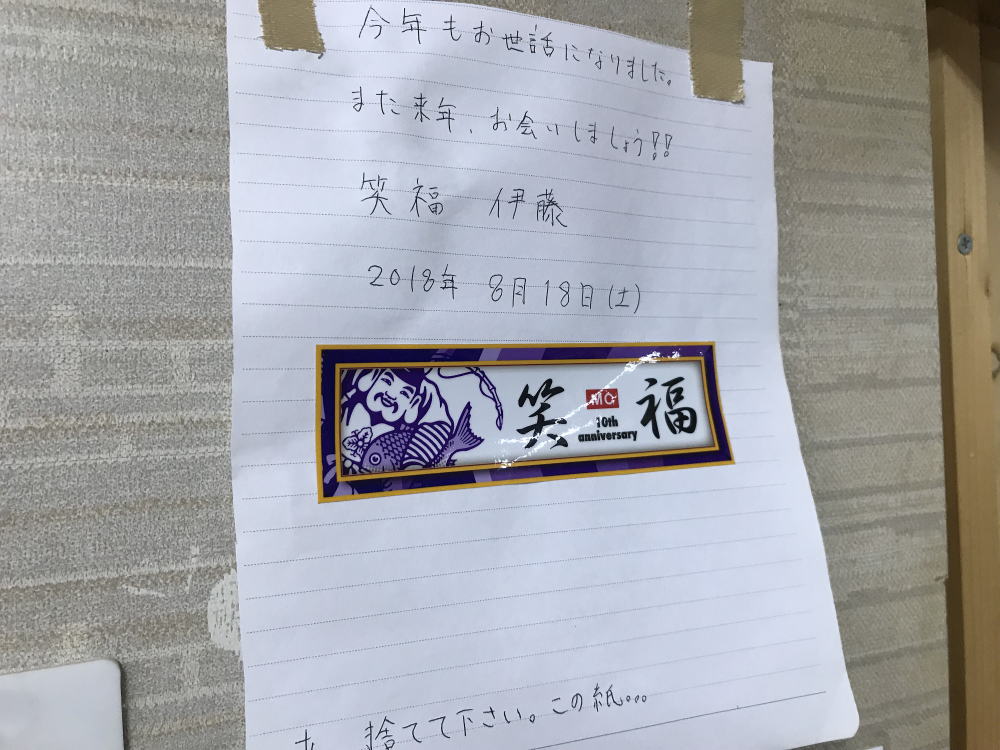 今年もお世話になりました。
また来年、お会いしましょう!!
笑福 伊藤
2018年 8月18日(土)
笑 MG 福
10th
anniversary
捨てて下さい。この紙...